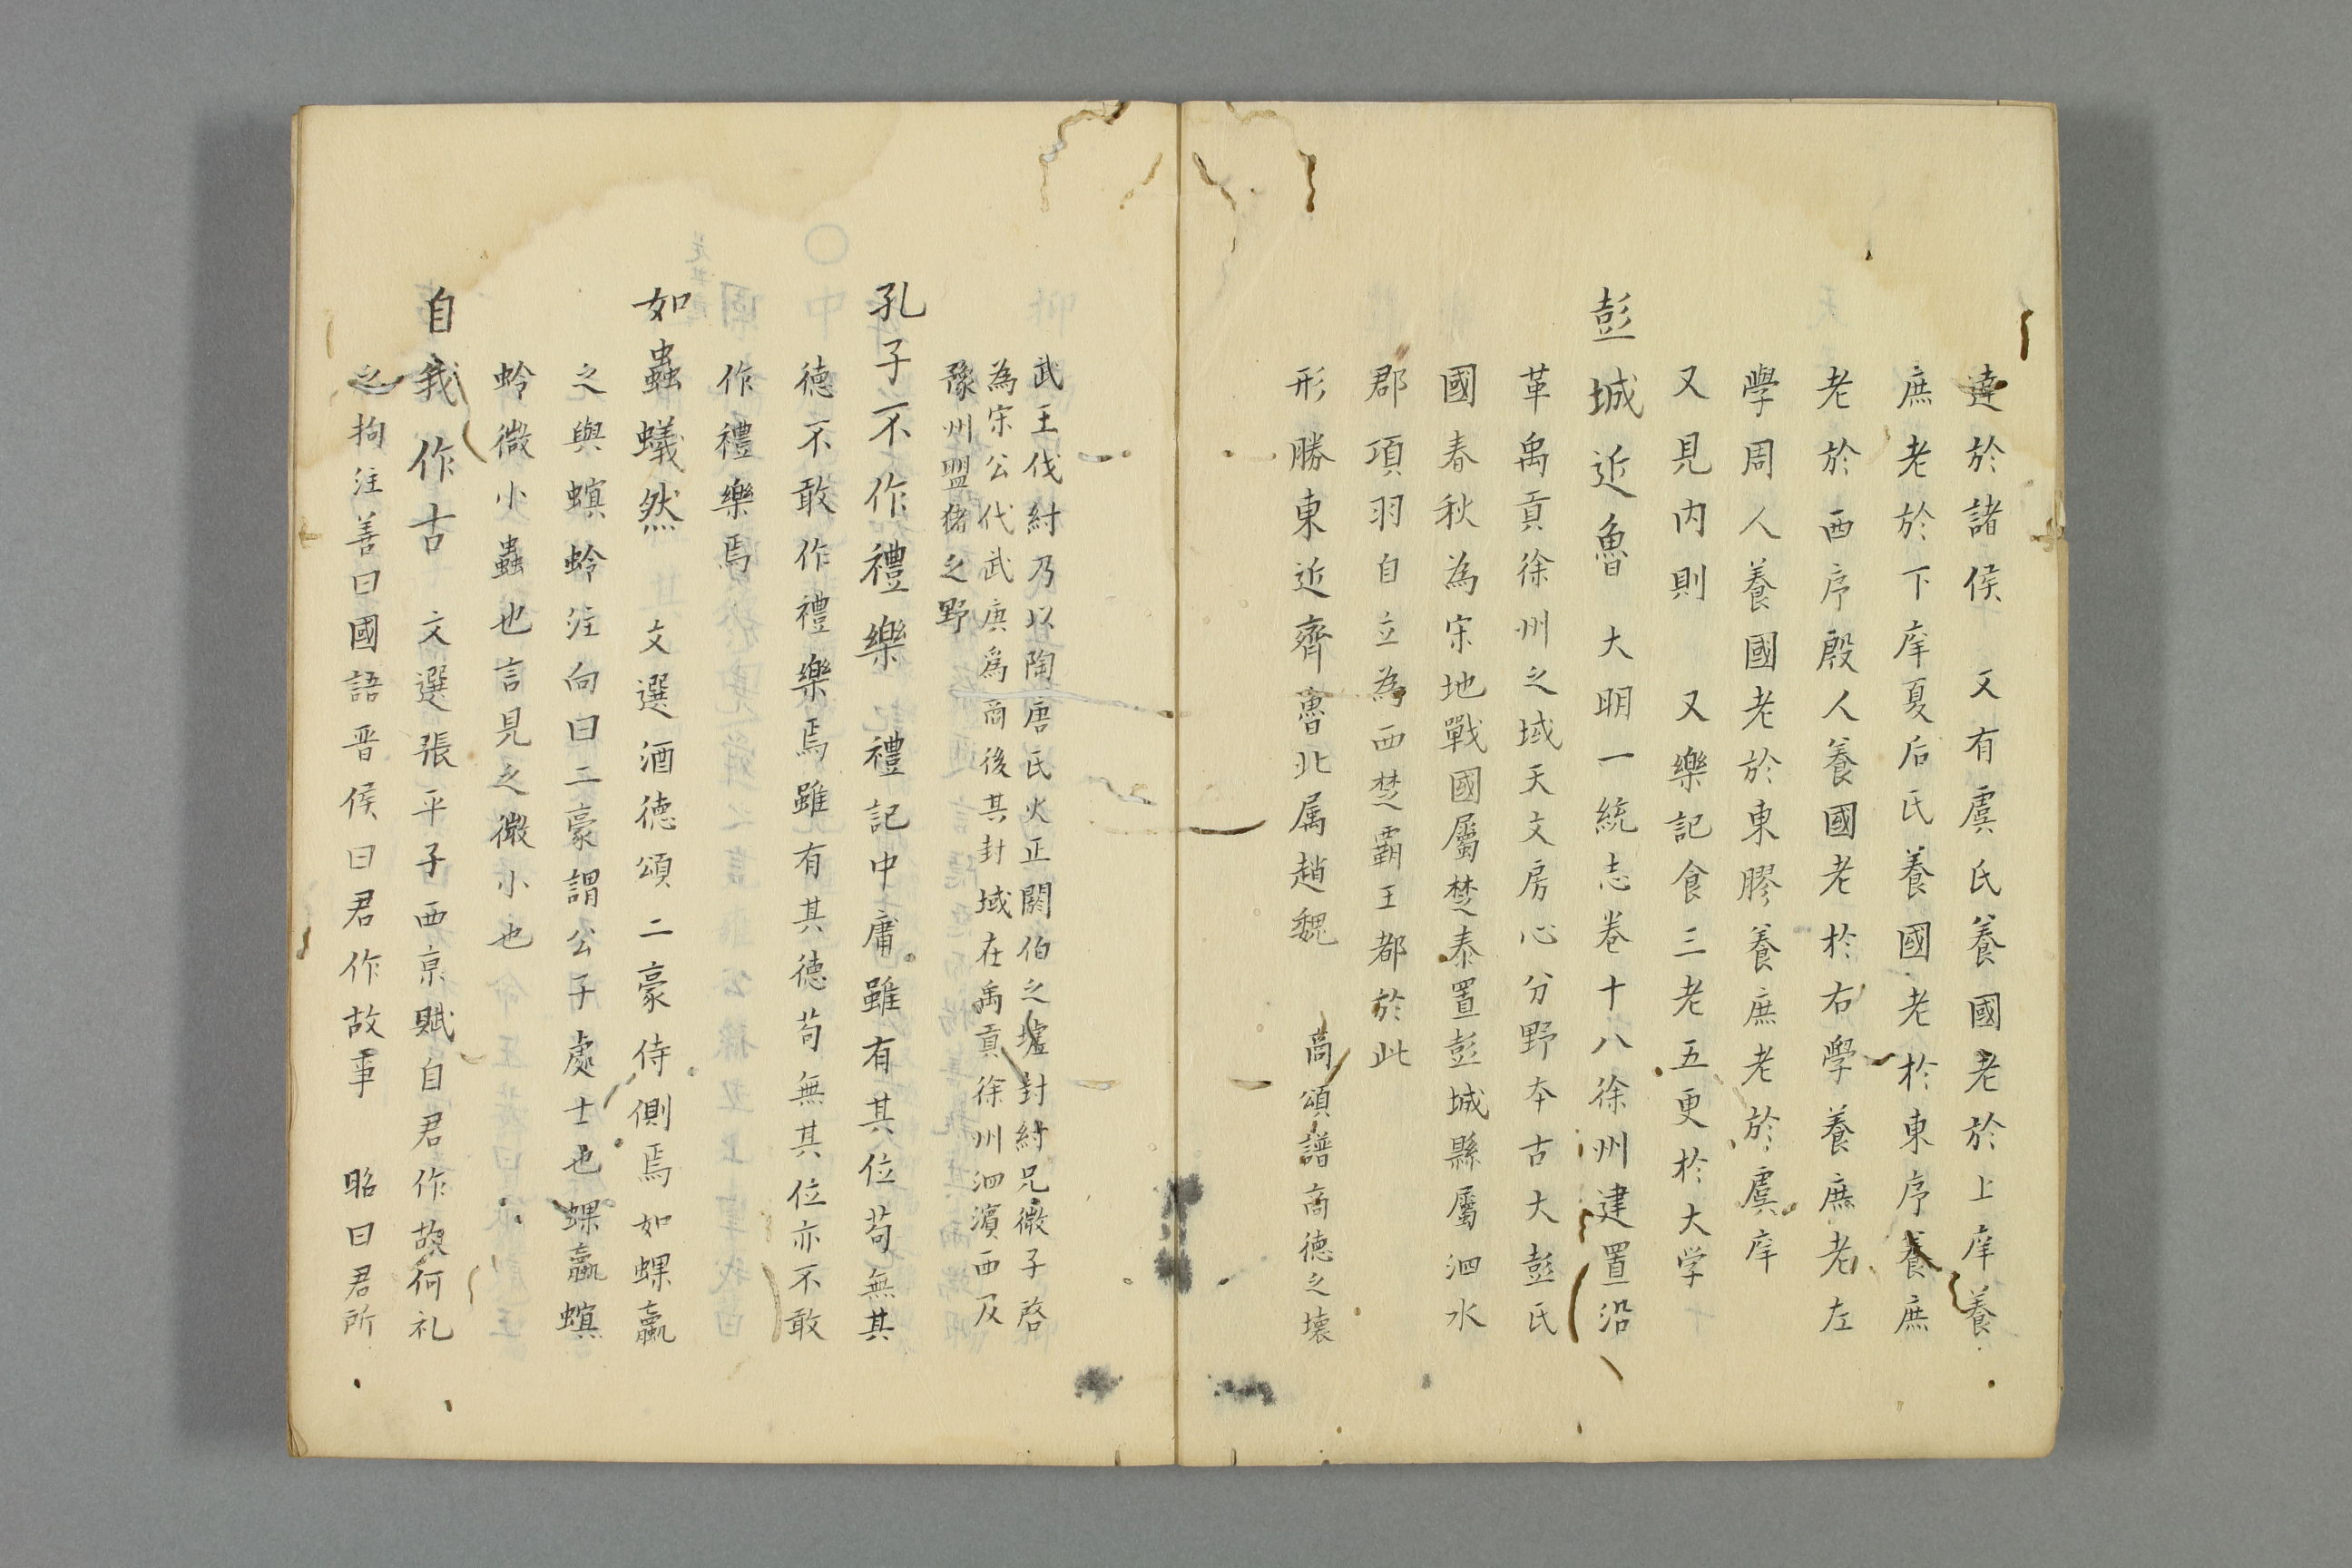 達於諸侯 又有虞氏養國老於上庠養
庶老於下庠夏后氏養國老於東序養庶
老於西序殷人養國老於右學養庶老左
學周人養國老於東膠養庶老於虞庠
又見内則 又樂記食三老五更於大学
彭城近魯 大明一統志巻十八徐州建置沿
革禹貢徐州之域天文房心分野本古大彭氏
國春秋為宋地戰國屬楚秦置彭城縣屬泗水
郡項羽自立為西楚覇王都於此
形勝東近齊魯北属趙魏 商頌譜商徳之壊
武王伐紂乃以陶唐氏火正閼伯之墟封紂兄微子啓
為宋公代武庚爲商後其封域在禹貢徐州泗濱西及
豫州盟猪之野
孔子不作禮樂 禮記中庸雖有其位苟無其
徳不敢作禮樂焉雖有其徳苟無其位亦不敢
作禮樂焉
如蟲蟻然 文選酒徳頌二豪侍側焉如蜾蠃
之與螟蛉注向曰二豪謂公子處士也蜾蠃螟
蛉微小蟲也言見之微小也
自我作古 文選張平子西京賦自君作故何礼
之拘注善曰國語晋侯曰君作故事 昭曰君所